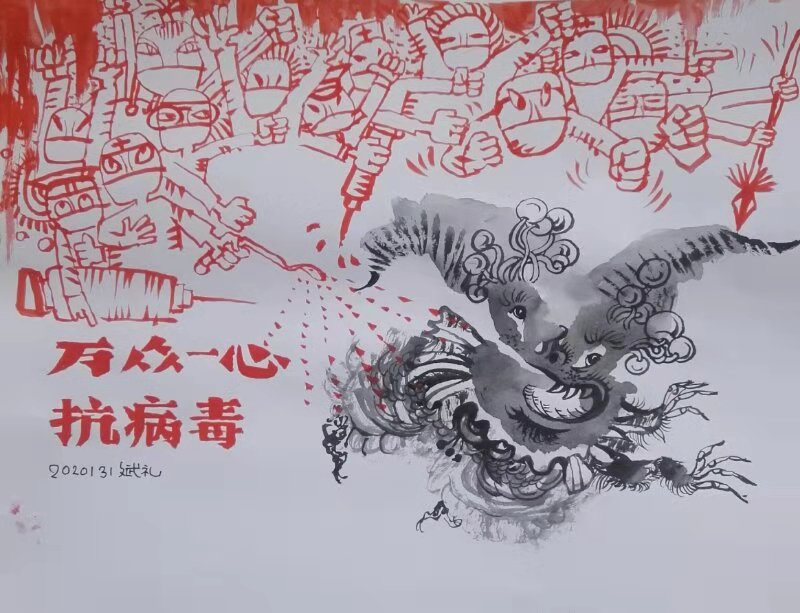 万众一心
抗病毒
2020131 斌礼